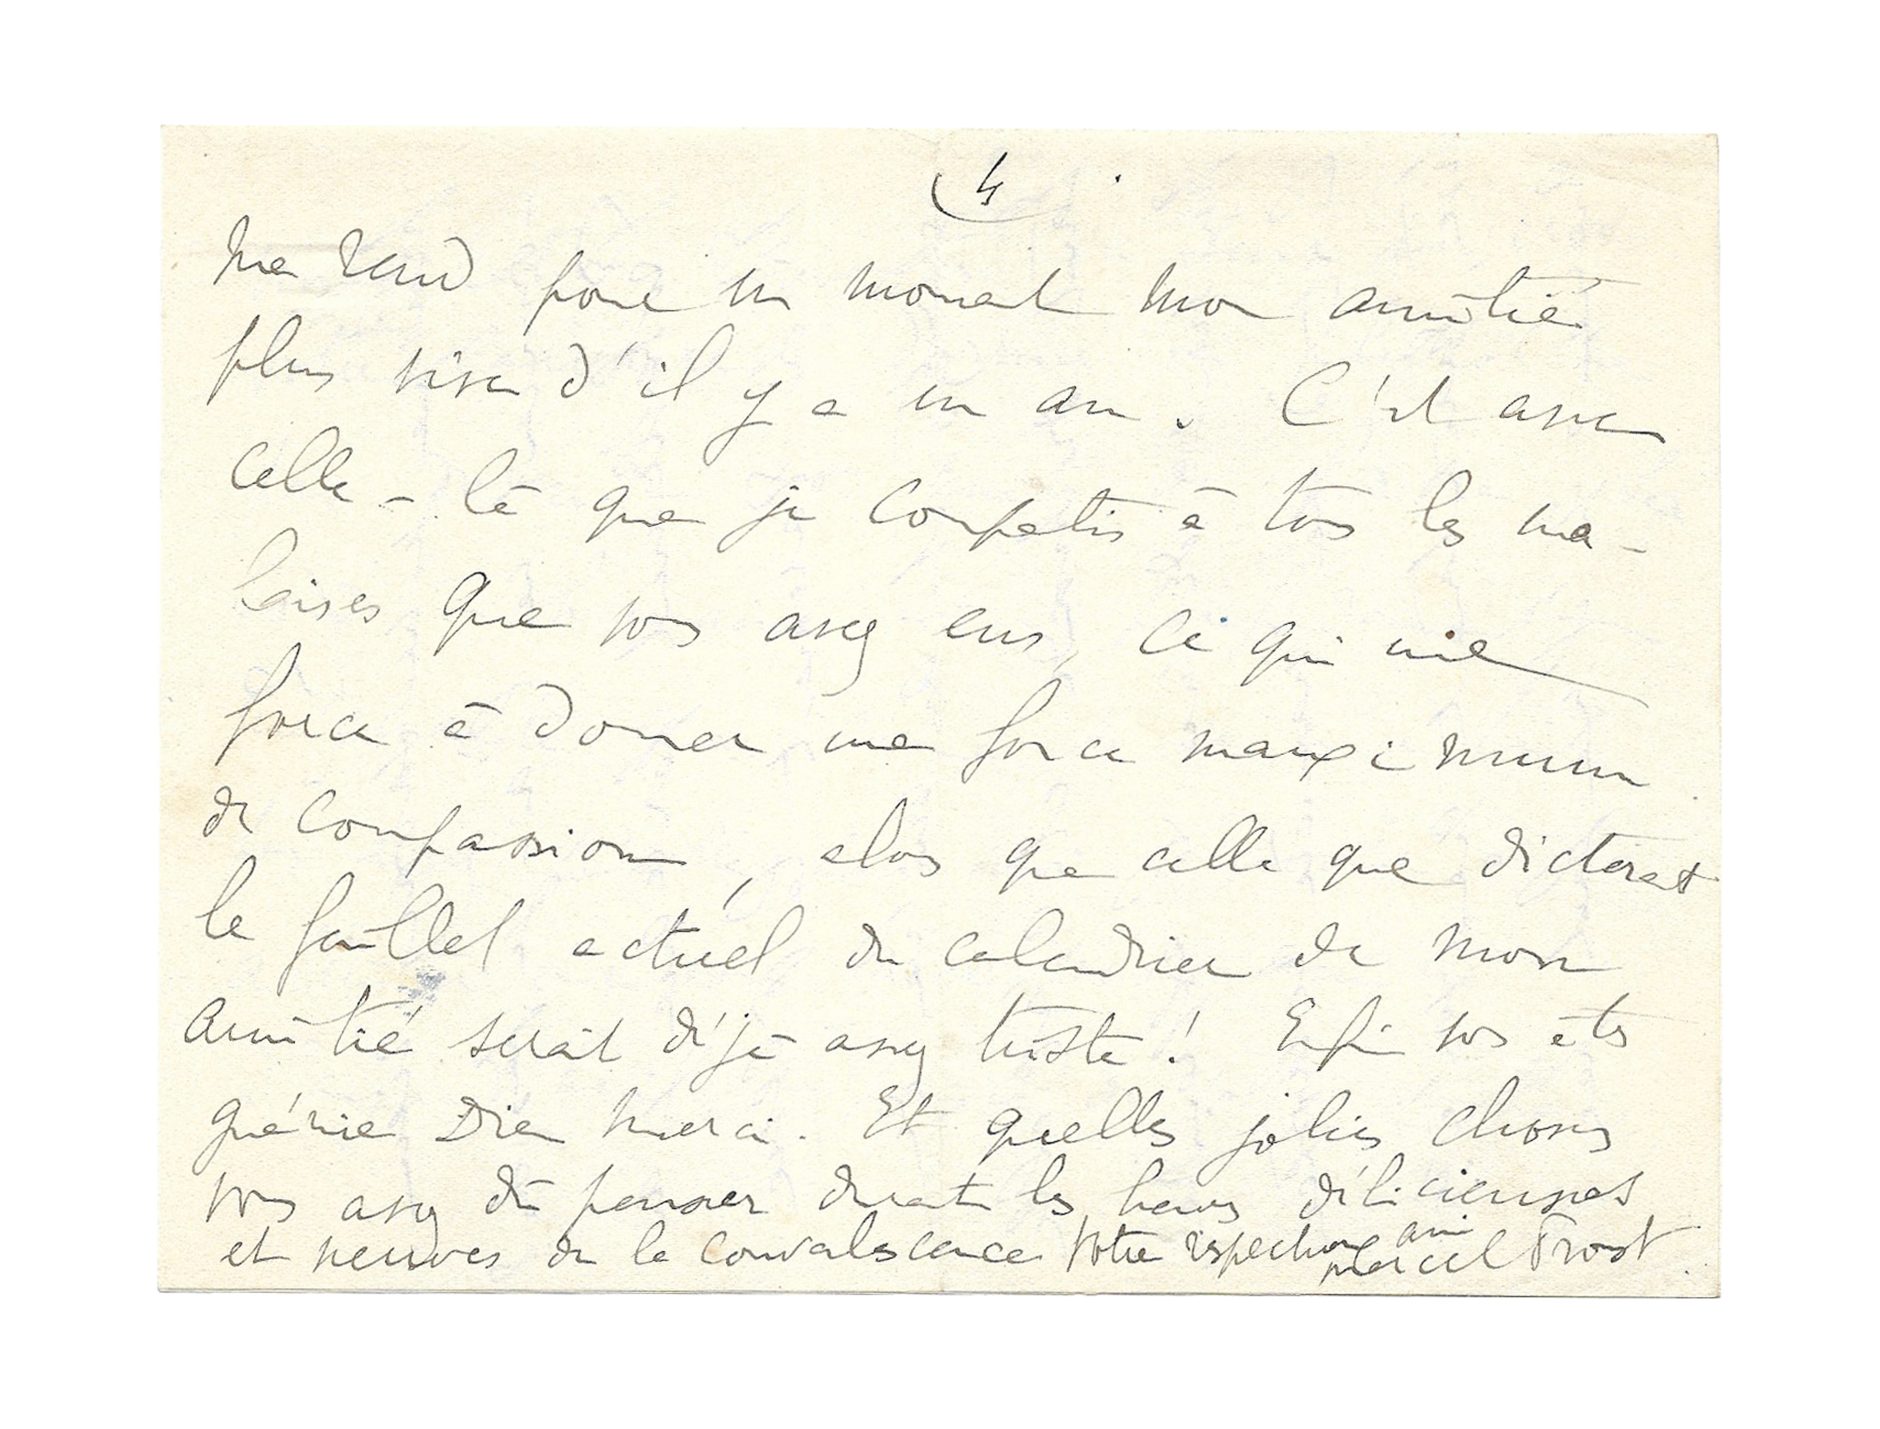 4
me rend pour un moment mon amitié
plus vive d'il y a un an. C'est avec
celle-là que je compatis à tous les ma-
laises que vous avez eus, ce qui me
force à donner une force maximum
de compassion, alors que celle que dicterait
le feuillet actuel du calendrier de mon
amitié serait déjà assez triste ! Enfin vous êtes
guérie Dieu merci. Et quelles jolies choses
vous avez dû penser durant les heures délicieuses
et neuves de la convalescence Votre respectueux ami
Marcel Proust